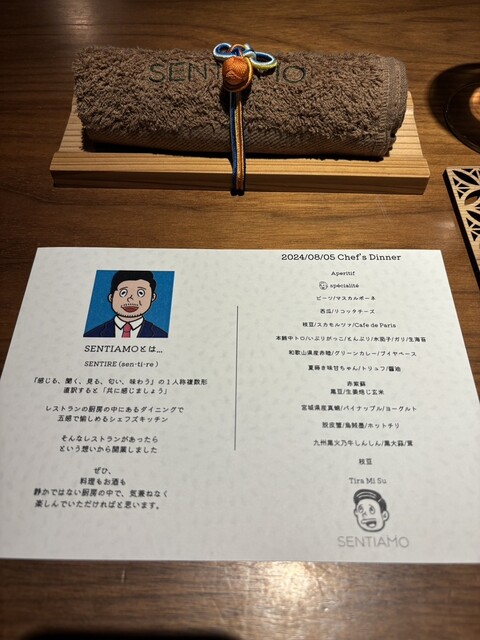 SENTIAMO
SENTIAMOとは...
SENTIRE (sen·ti·re )
「感じる、聞く、見る、匂い、味わう」の１人称複数形
直訳すると「共に感じましょう」
レストランの厨房の中にあるダイニングで
五感で愉しめるシェフズキッチン
そんなレストランがあったら
という想いから開業しました
ぜひ、
料理もお酒も
静かではない厨房の中で、気兼ねなく
楽しんでいただければと思います。
2024/08/05 Chef's Dinner
Aperitif
spécialité
ビーツ/マスカルポーネ
西瓜/リコッタチーズ
枝豆/スカモルツァ/Cafe de Paris
本鮪中トロ/いぶりがっこ/とんぶり/水茄子/ガリ/生海苔
和歌山県産赤睦/グリーンカレー/ブイヤベース
夏蒔き味甘ちゃん/トリュフ/醤油
赤紫蘇
黒豆/生姜/他じ玄米
宮城県産真蛸/パイナップル/ヨーグルト
脱皮蟹/烏賊墨/ホットチリ
九州産火乃牛しんしん/黒大蒜/葱
枝豆
Tira Mi Su
SENTIAMO